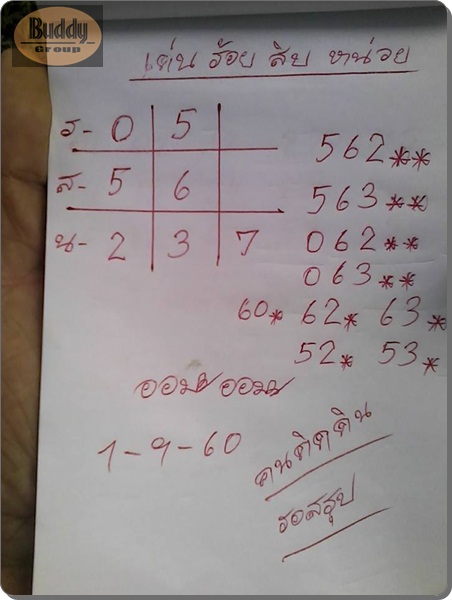 Buddy
Group
เด่น ร้อย สิบ หน่วย
ร- 0 5
ส- 5 6
น- 2 3 7
562**
563**
062**
063**
60* 62* 63*
52* 53*
ออมพ ออมพ
1-9-60
คนติดดิน
รอสรุป